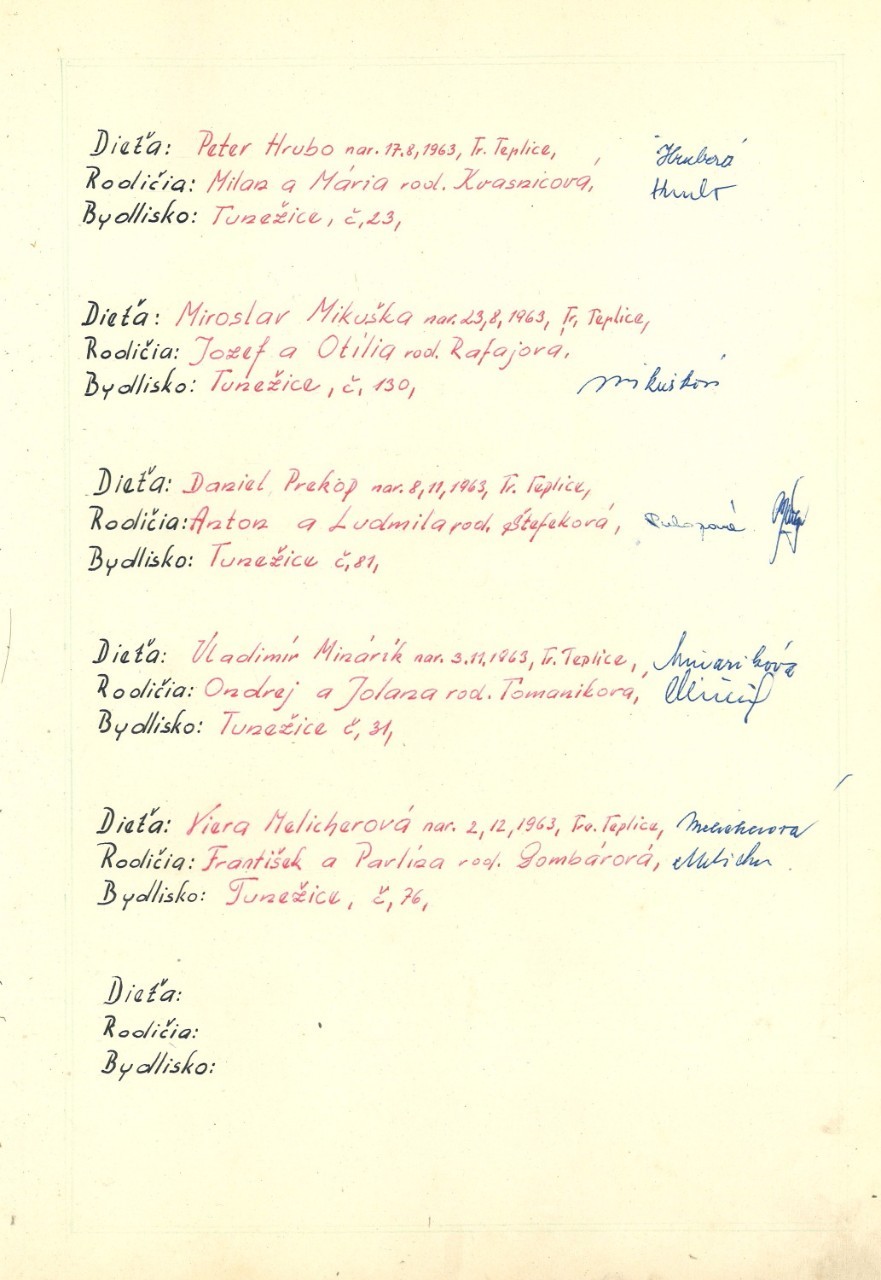 Dieťa: Peter Hrubo nar. 17.8,1963, Tr. Teplice,
Rodičia: Milan a Mária rod. Kvasnicová,
Bydlisko: Tunežice, č,23,
Hrubová
Hrubo
Dieťa: Miroslav Mikuška nar. 23,8,1963, Tr, Teplice,
Rodičia: Jozef a Otília rod. Rafajova,
Bydlisko: Tunežice, č, 130,
Mikušková
Dieťa: Daniel Prekop nar. 8,11,1963, Tr. Teplice,
Rodičia: Anton a Ludmila rod. Štefeková,
Bydlisko: Tunežice č,81,
Dieťa: Vladimír Minárik nar. 3.11,1963, Tr. Teplice,
Rodičia: Ondrej a Jolana rod. Tomanikova,
Bydlisko: Tunežice č, 31,
Minariková
Dieťa: Viera Melicherová nar. 2,12,1963, Tr. Teplice,
Rodičia: František a Pavlína rod. Gombárová,
Bydlisko: Tunežice, č, 76,
Melicherova
Melicher
Dieťa:
Rodičia:
Bydlisko: